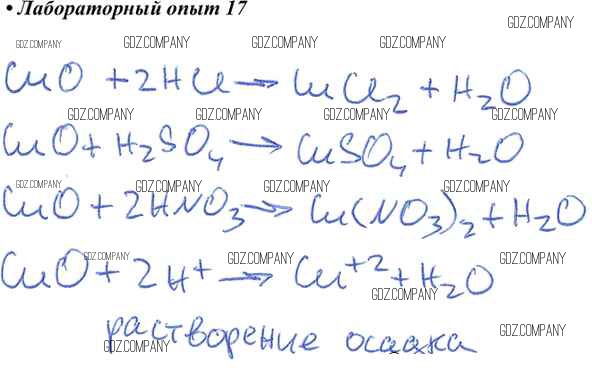 • Лабораторный опыт 17
GDZ.COMPANY
GDZ.COMPANY GDZ.COMPANY GDZ.COMPANY GDZ.COMPANY
CuO + 2HCl → CuCl₂ + H₂O
GDZ.COMPANY GDZ.COMPANY GDZ.COMPANY GDZ.COMPANY
CuO + H₂SO₄ → CuSO₄ + H₂O
GDZ.COMPANY GDZ.COMPANY GDZ.COMPANY GDZ.COMPANY
CuO + 2HNO₃ → Cu(NO₃)₂ + H₂O
GDZ.COMPANY GDZ.COMPANY GDZ.COMPANY
CuO + 2H⁺ → Cu⁺² + H₂O
GDZ.COMPANY
растворение осадка
GDZ.COMPANY GDZ.COMPANY